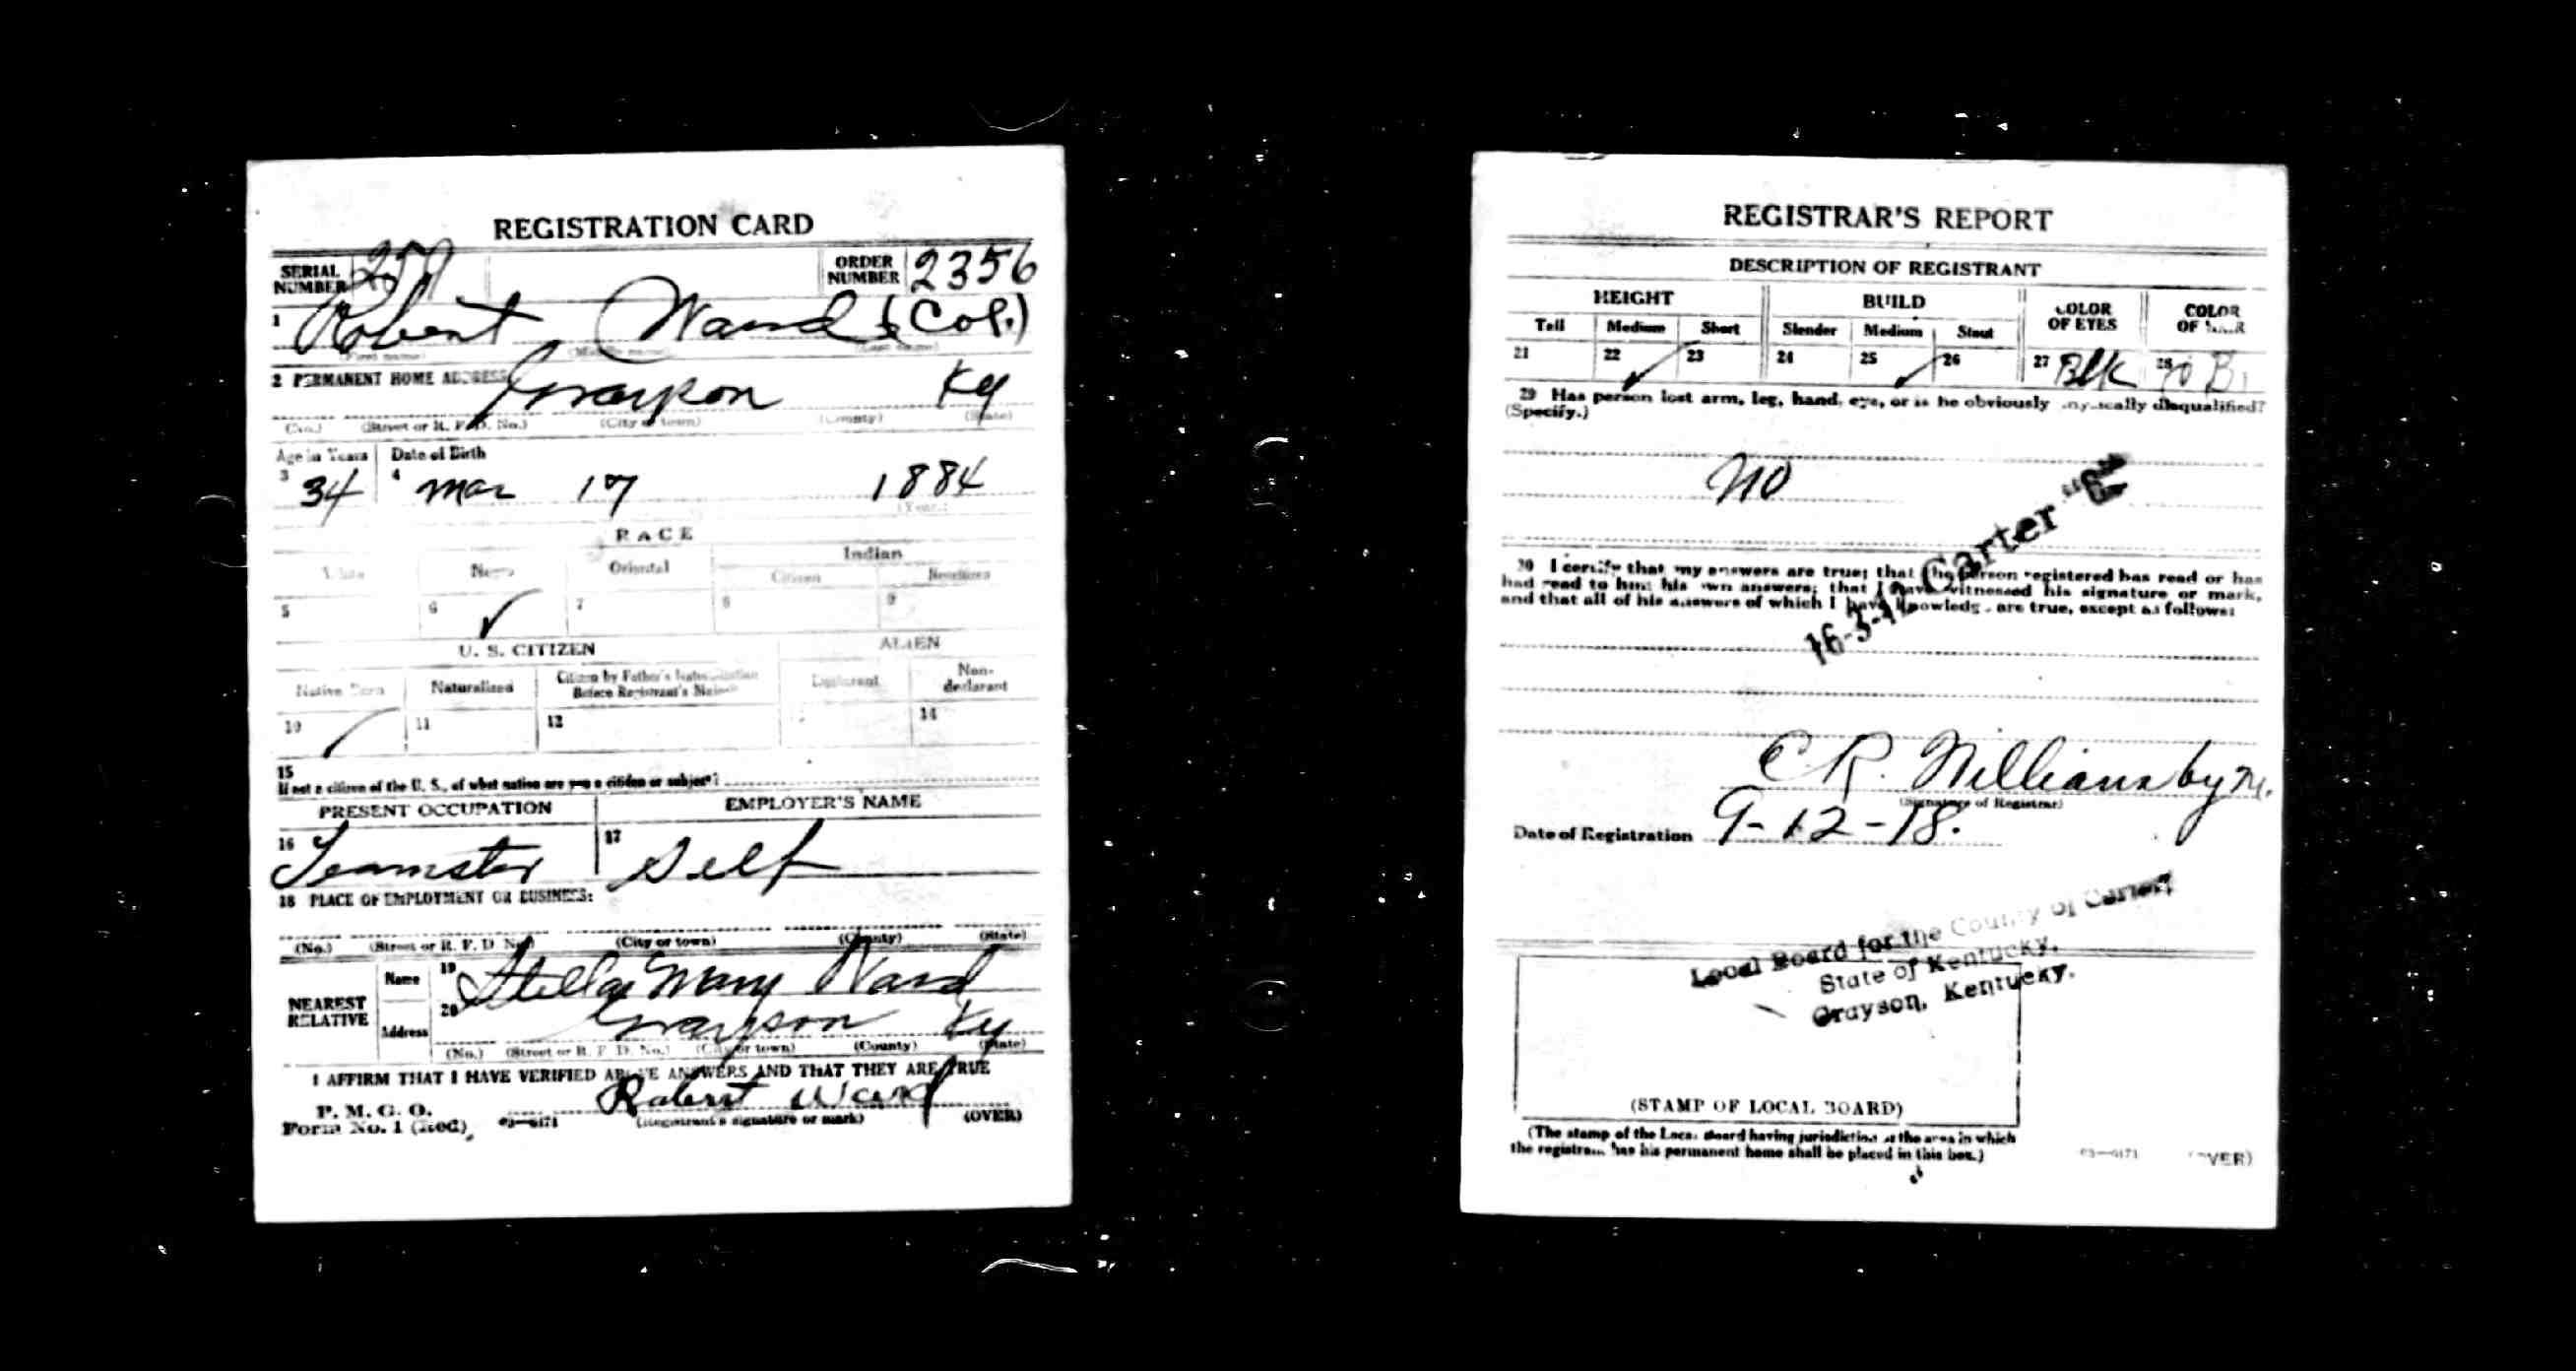 REGISTRATION CARD
SERIAL NUMBER
ORDER NUMBER 2356
1 Robert Ward (Col.)
(First name) (Middle name) (Last name)
2 PERMANENT HOME ADDRESS Grayson Ky
(No.) (Street or R. F. D. No.) (City or town) (County) (State)
Age in Years Date of Birth
3 34 4 Mar 17 1884
(Year.)
RACE
White Negro Oriental Indian
Citizen Noncitizen
5 6 ✓ 7 8 9
U. S. CITIZEN ALIEN
Native Born Naturalized Citizen by Father's Naturalization Before Registrant's Majority Declarant Non-declarant
10 ✓ 11 12 14
15
If not a citizen of the U. S., of what nation are you a citizen or subject?
PRESENT OCCUPATION EMPLOYER'S NAME
16 Teamster 17 Self
18 PLACE OF EMPLOYMENT OR BUSINESS:
(No.) (Street or R. F. D. No.) (City or town) (County) (State)
NEAREST RELATIVE
Name 19 Stella Mary Ward
Address 20 Grayson Ky
(No.) (Street or R. F. D. No.) (City or town) (County) (State)
I AFFIRM THAT I HAVE VERIFIED ABOVE ANSWERS AND THAT THEY ARE TRUE
P. M. G. O.
Form No. 1 (Red) 03—6171 Robert Ward
(Registrant's signature or mark) (OVER)
REGISTRAR'S REPORT
DESCRIPTION OF REGISTRANT
HEIGHT BUILD COLOR OF EYES COLOR OF HAIR
Tall Medium Short Slender Medium Stout
21 22 ✓ 23 24 25 ✓ 26 27 Blk 28
29 Has person lost arm, leg, hand, eye, or is he obviously physically disqualified?
(Specify.)
no
16-3-12 Carter "C"
30 I certify that my answers are true; that the person registered has read or has
had read to him his own answers; that I have witnessed his signature or mark,
and that all of his answers of which I have knowledge are true, except as follows:
C. R. Williams by M.
(Signature of Registrar)
Date of Registration 9-12-18.
Local Board for the County of Carter,
State of Kentucky,
Grayson, Kentucky.
(STAMP OF LOCAL BOARD)
(The stamp of the Local Board having jurisdiction of the area in which
the registrant has his permanent home shall be placed in this box.)
03—6171 (OVER)